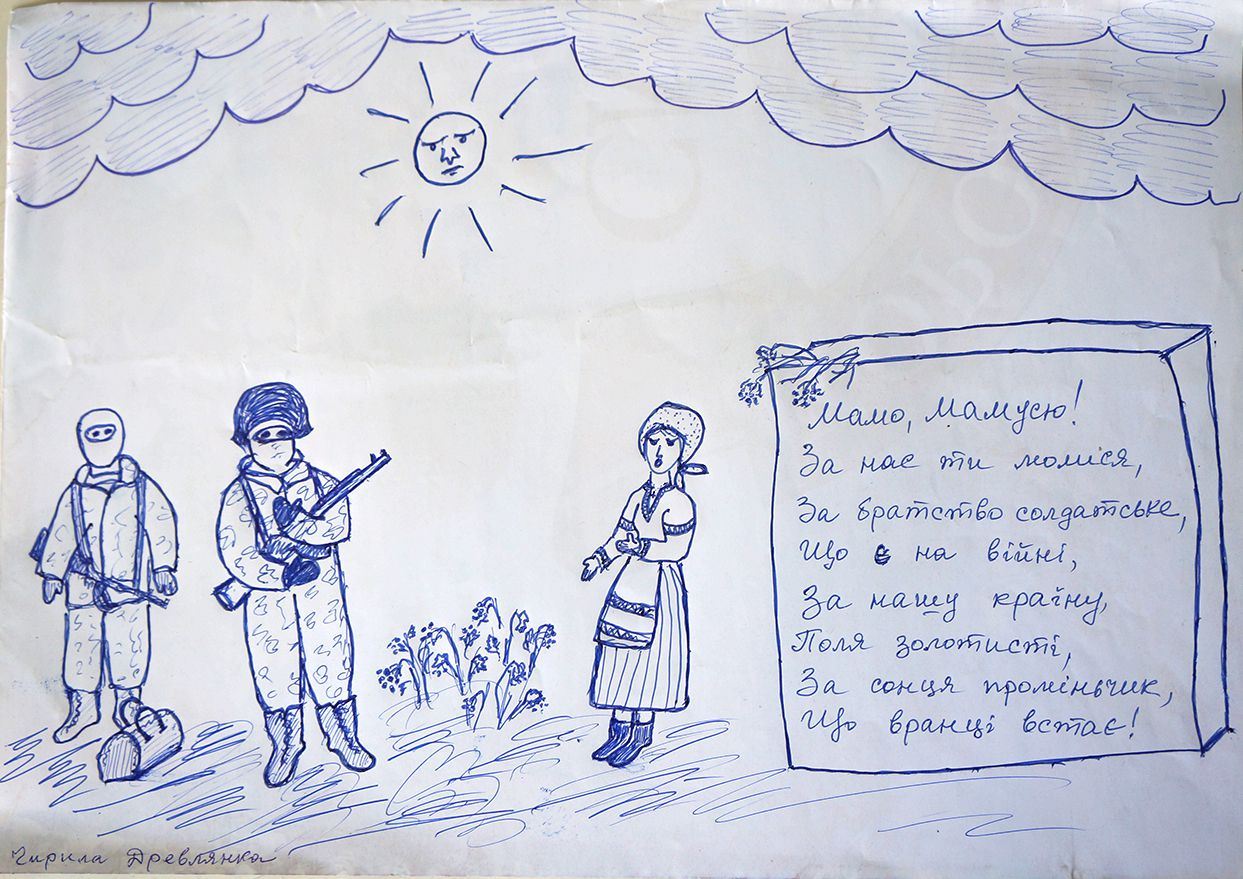 Мамо, Мамусю!
За нас ти молися,
За братство солдатське,
Що є на війні,
За нашу країну,
Поля золотисті,
За сонця проміньчик,
Що вранці встає!
Чирила Древлянка